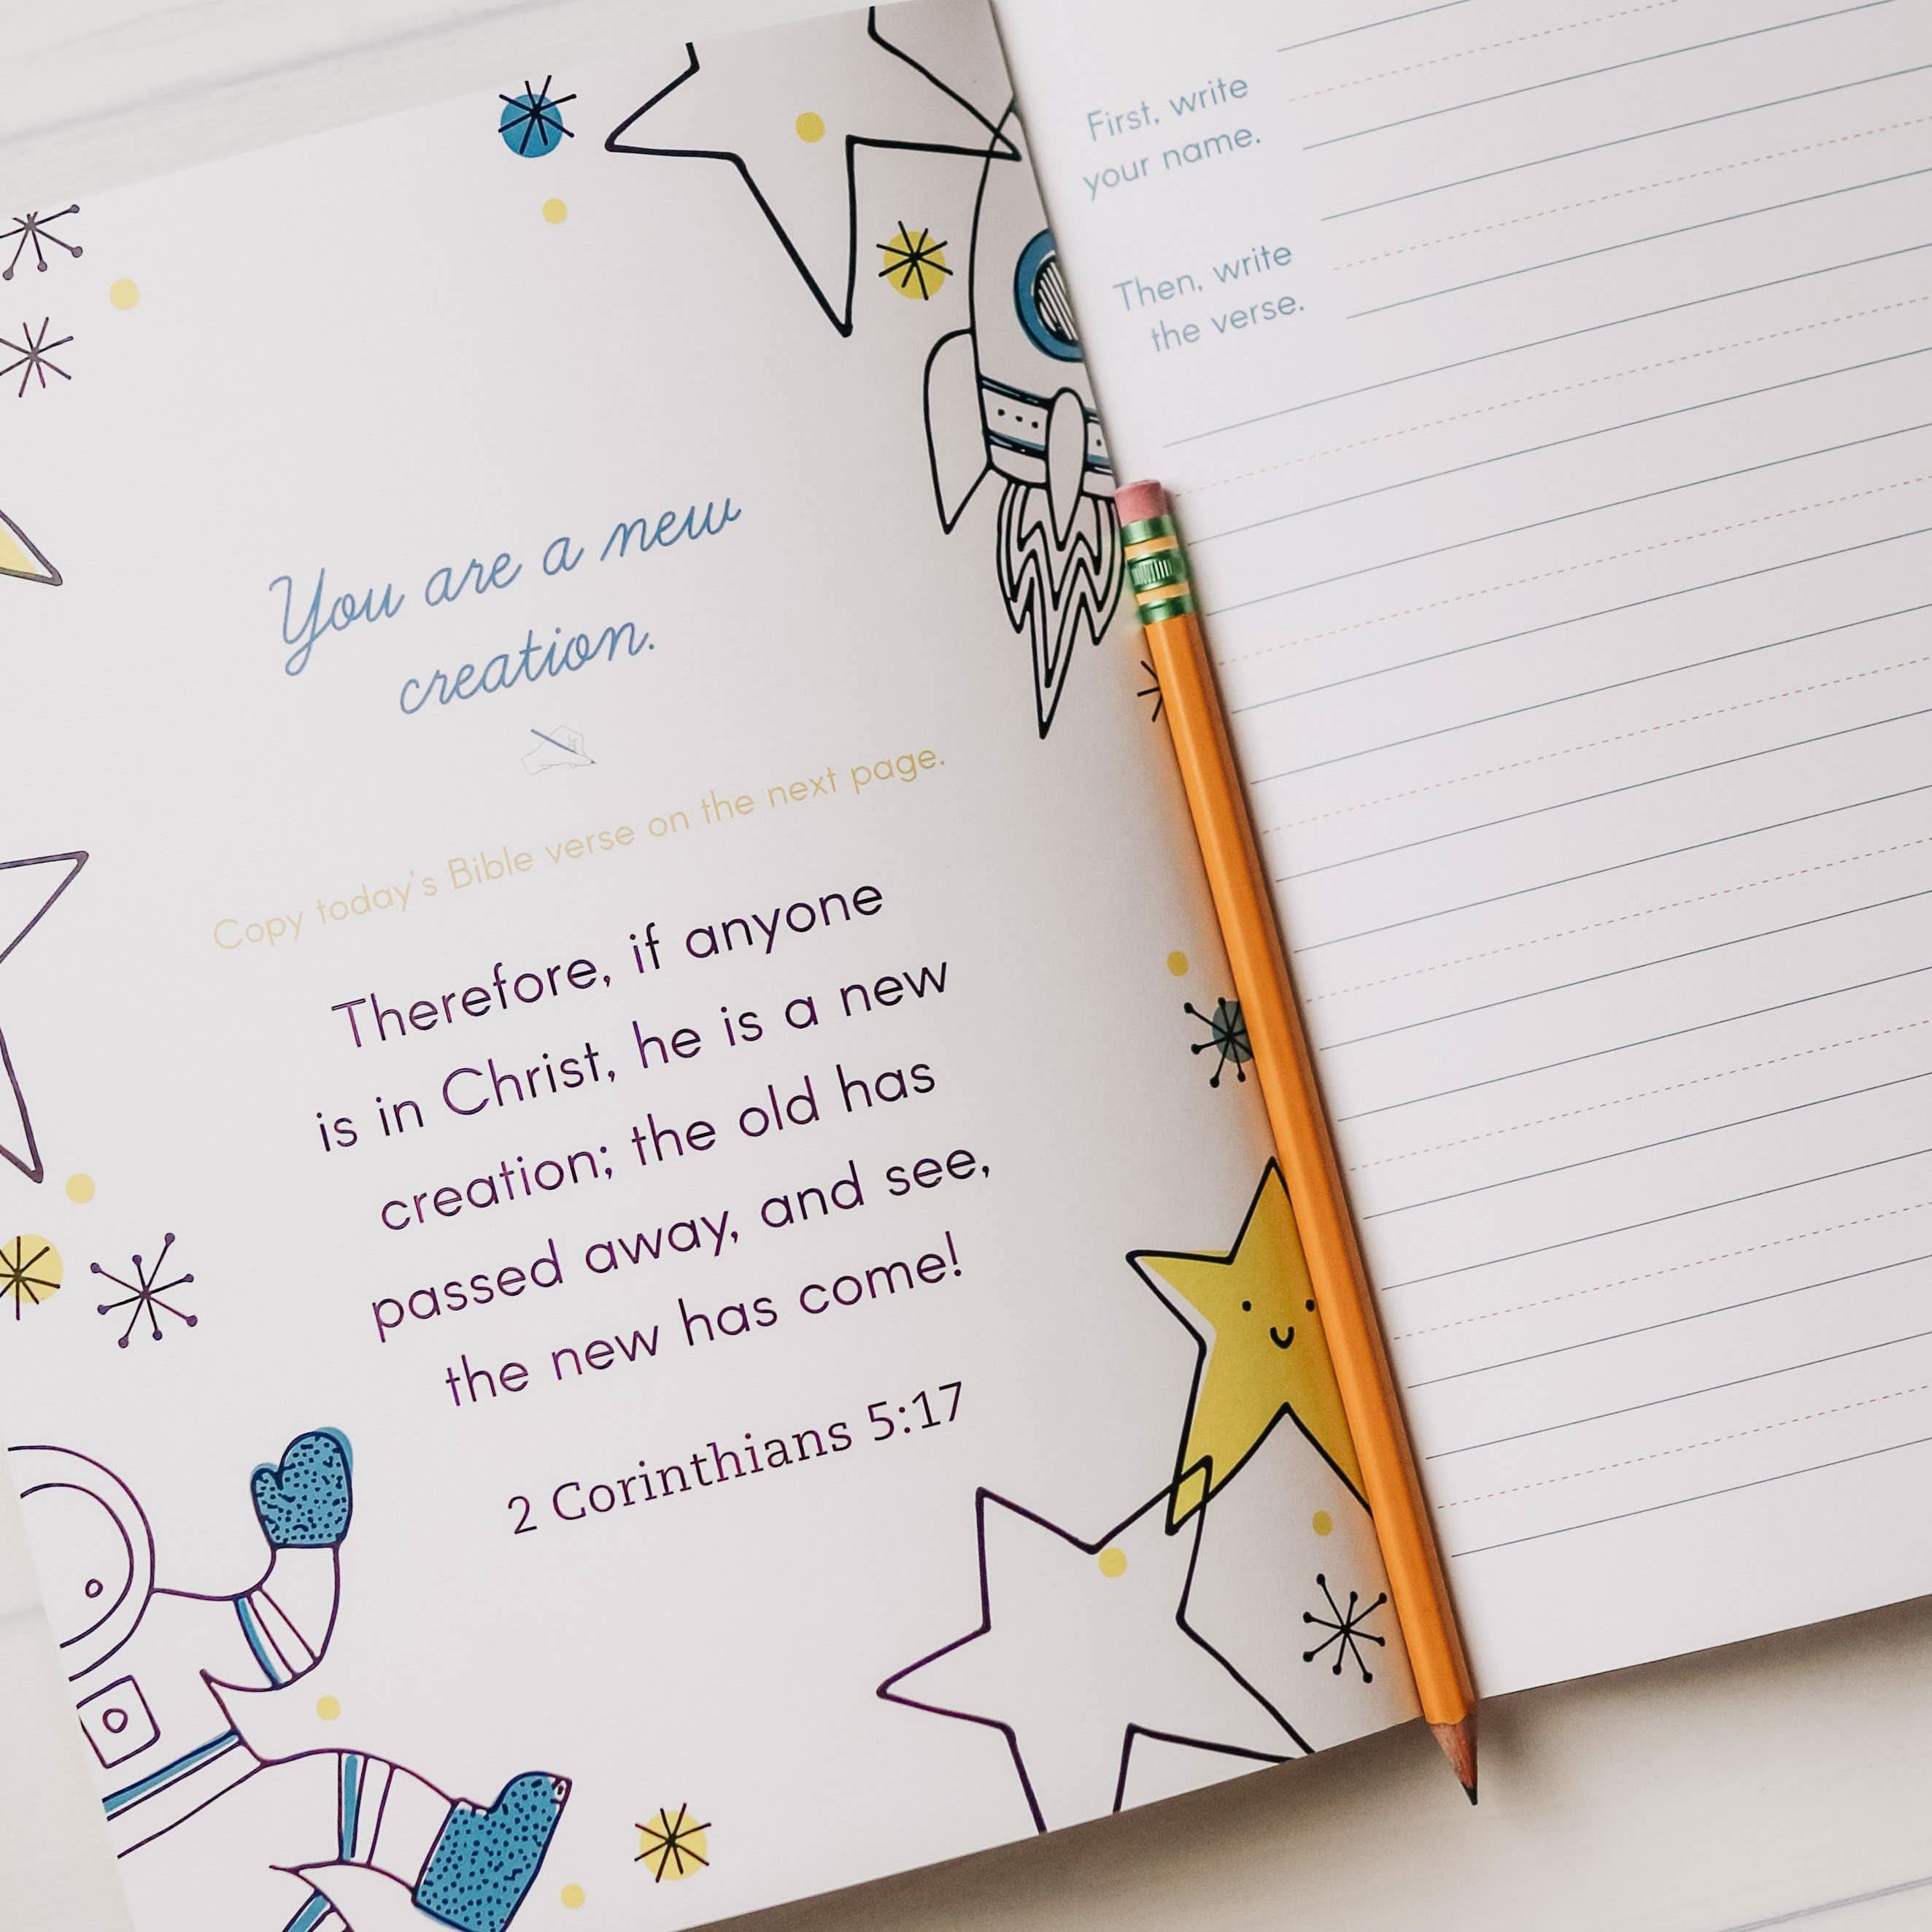 You are a new
creation.
Copy today's Bible verse on the next page.
Therefore, if anyone
is in Christ, he is a new
creation; the old has
passed away, and see,
the new has come!
2 Corinthians 5:17
First, write
your name.
Then, write
the verse.